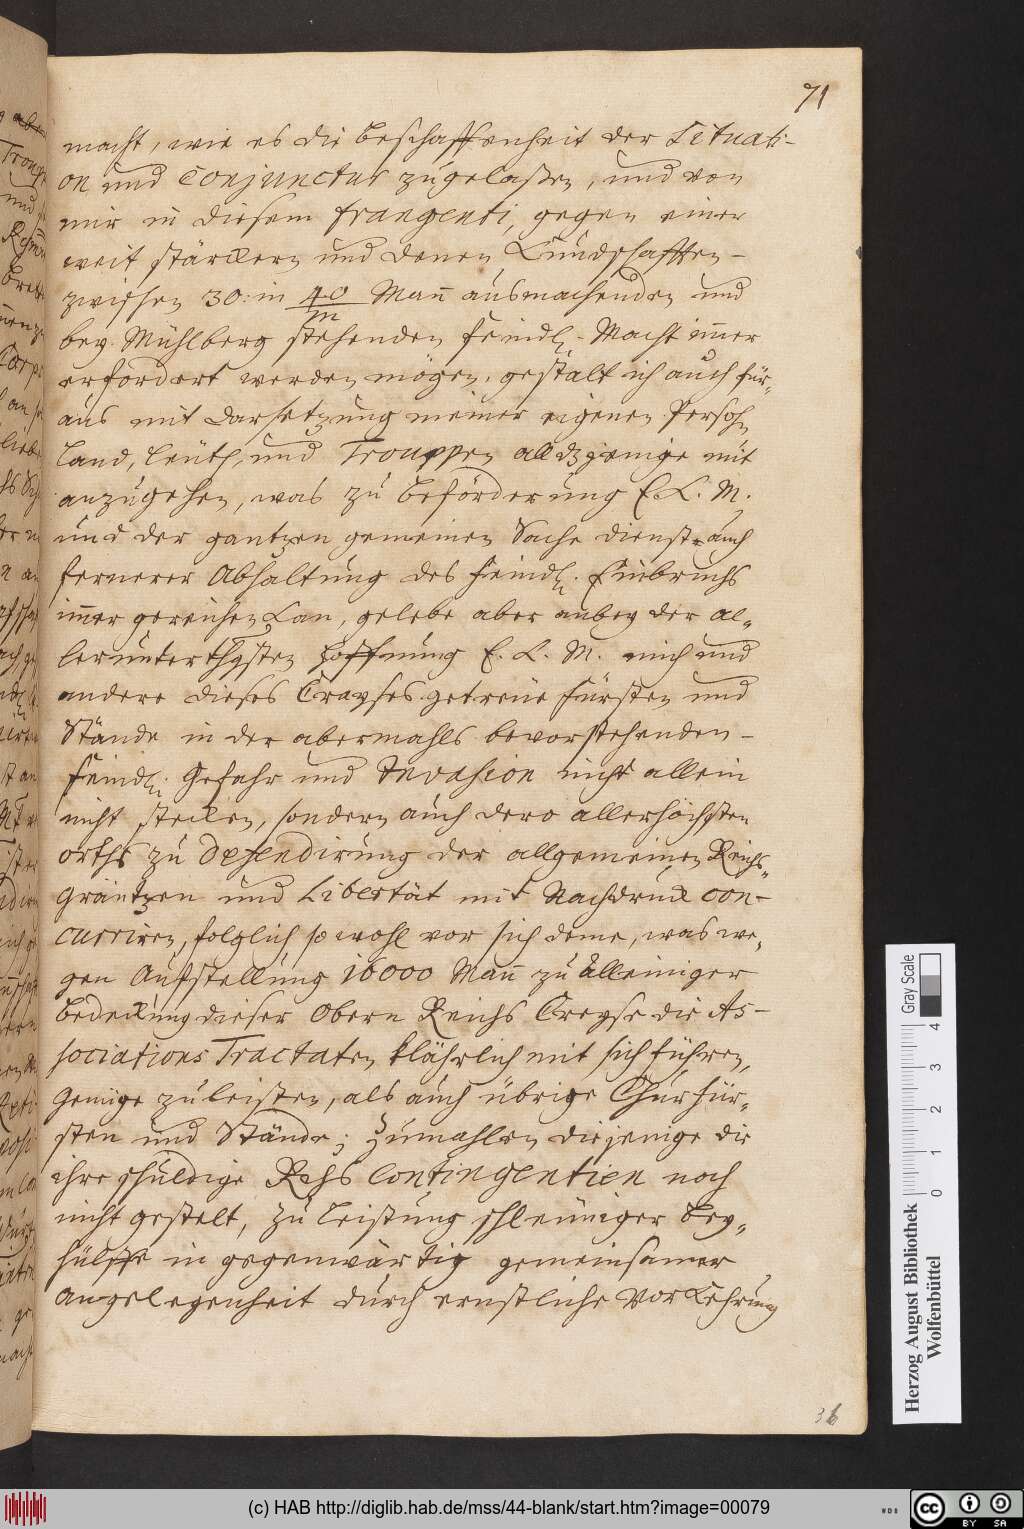 71
macht, wie es die Beschaffenheit der Situati-
on und Conjunctur zugelaßen, und von
mir in diesem frangenti, gegen einer
weit stärckern und denen Kundschafften-
zwischen 30: in 40/m Man̄ ausmachenden und
bey Mühlberg stehenden feindl. Macht im̄er
erfordert werden mögen, gestalt ich auch für-
aus mit darsetzung meiner eigenen Persohn
Land, Leuth, und Trouppen all dzjenige mit
anzugehen, was zu beförderung E. K. M.
und der gantzen gemeinen Sache dienst- auch
fernerer Abhaltung des feindl. Einbruchs
im̄er gereichen kan, gelebe aber anbey der al-
lerunterthgsten hoffnung E. K. M. mich und
andere dieses Crayses getreue Fürsten und
Stände in der abermahls bevorstehenden-
feindl. Gefahr und Invasion nicht allein
nicht stecken, sondern auch dero allerhöchsten
orths zu Defendirung der allgemeinen Reichs-
Gräntzen und Libertät mit Nachdruck con-
curriren, folglich so wohl vor sich deme, was we-
gen Aufstellung 16000 Man̄ zu alleiniger
bedeckung dieser Obern Reichs Creyse die As-
sociations Tractaten klährlich mit sich führen,
Genüge zu leisten, als auch übrige Churfür-
sten und Stände; Zumahlen diejenige die
ihre schuldige Rchs Contingentien noch
nicht gestelt, zu leistung schleuniger Bey-
hülffe in gegenwärtig gemeinsamer
angelegenheit durch ernstliche Vorkehrung
36
Herzog August Bibliothek
Wolfenbüttel
Gray Scale
0 1 2 3 4
(c) HAB http://diglib.hab.de/mss/44-blank/start.htm?image=00079
WDB
cc BY SA